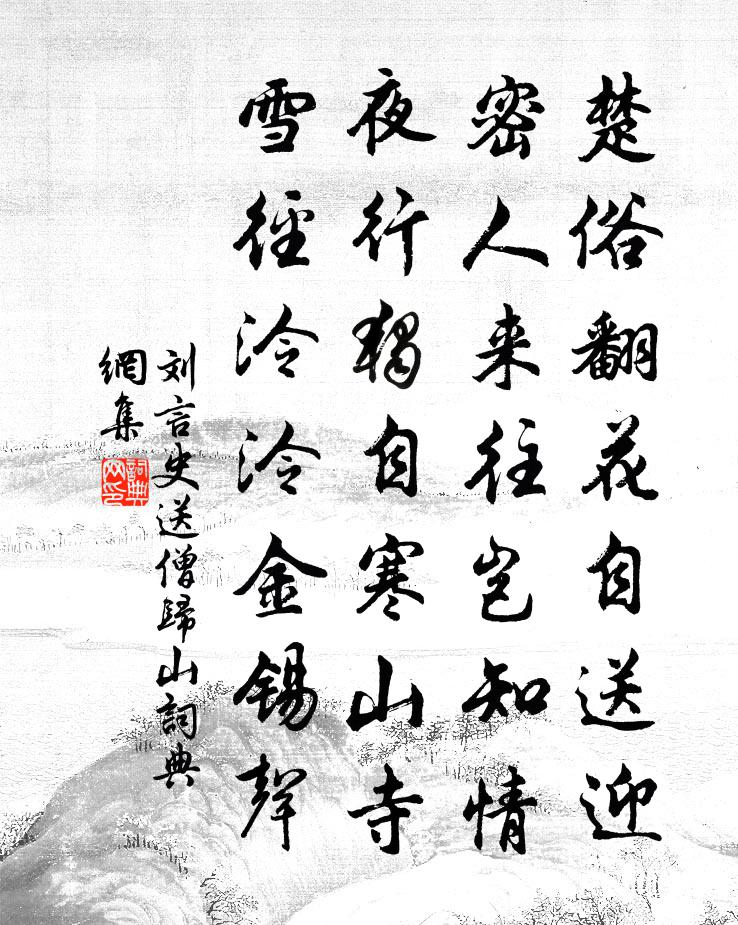 楚俗翻花自送迎
密人来往岂知情
夜行独自寒山寺
雪径泠泠金锡声
刘言史送僧归山词典
網集
詞典网印